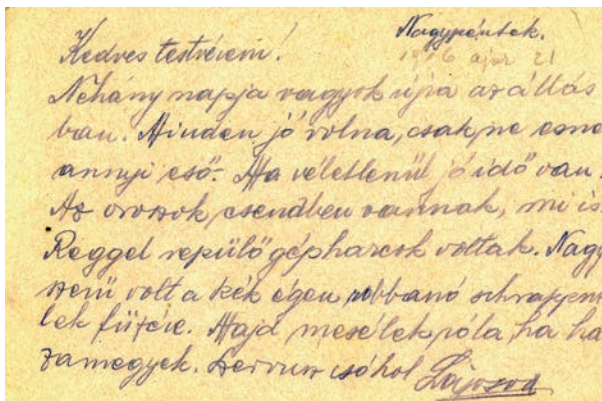 Nagypéntek.
1916 ápr 21
Kedves testvéreim!
Néhány napja vagyok újra az állás
ban. Minden jó volna, csak ne esne
annyi eső. Ma véletlenül jó idő van.
Az oroszok csendben vannak, mi is.
Reggel repülőgépharcok voltak. Nagy
szerű volt a kék égen robbanó schrapne
lek füzére. Majd mesélek róla, ha ha
zamegyek. Servus csókol Lajosod